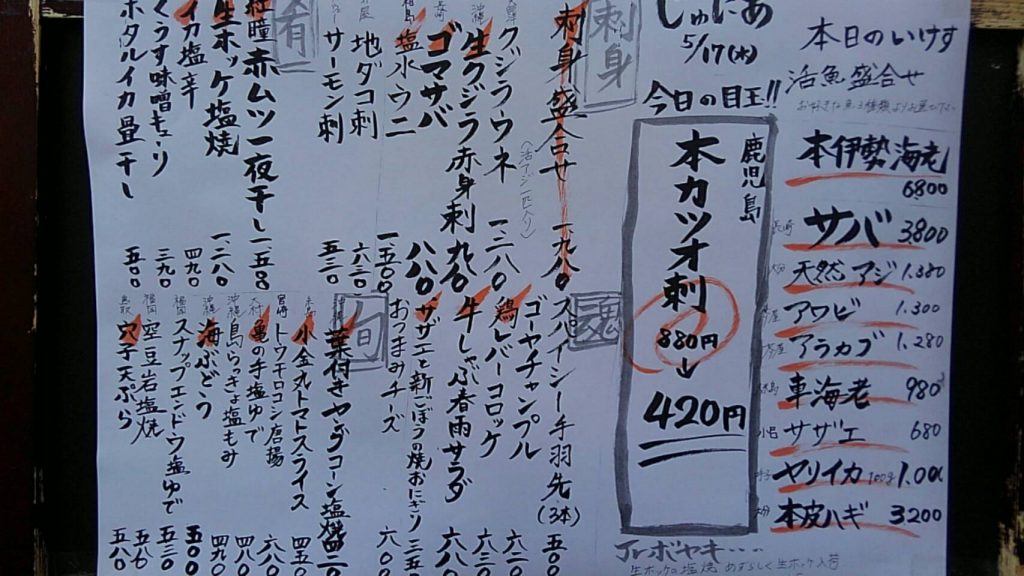 本日のいけす
活魚盛合せ
本伊勢海老 6800
長崎 サバ 3.800
天然アジ 1.380
アワビ 1.300
アラカブ 1.280
車海老 980
サザエ 680
ヤリイカ 100g 1.000
大分 本皮ハギ 3200
じゅにあ
5/17(水)
今日の目玉!!
鹿児島
本カツオ刺
880円
↓
420円
Jr.ボヤキ・・・・
生ホッケの塩焼 めずらしく生ホッケ入荷
刺身
刺身盛合せ 一九八〇
(活アジ一匹入り)
クジラウネ 一、二八〇
沖縄 生クジラ赤身刺 九八〇
長崎 ゴマサバ 八八〇
塩水ウニ 一、五〇〇
地ダコ刺 六三〇
サーモン刺 五三〇
肴
赤ムツ一夜干し 一、一五〇
生ホッケ塩焼 一、二八〇
イカ塩辛 四九〇
くうす味噌キューリ 三九〇
ホタルイカ畳干し 五〇〇
魂
スパイシー手羽先(3本) 五〇〇
ゴーヤチャンプル 六二〇
鶏レバーコロッケ 六三〇
牛しゃぶ春雨サラダ 六八〇
サザエと新ごぼうの焼おにぎり 三五〇
おつまみチーズ 六〇〇
旬
葉付きヤングコーン塩焼
小金丸トマトスライス 四五〇
宮崎 トウモロコシ店揚 六八〇
大村 亀の手塩ゆで 四八〇
沖縄 島らっきょ塩もみ 四九〇
沖縄 海ぶどう 五〇〇
福岡 スナップエンドウ塩ゆで 五三〇
福岡 空豆岩塩焼 五八〇
島原 穴子天ぷら 五八〇